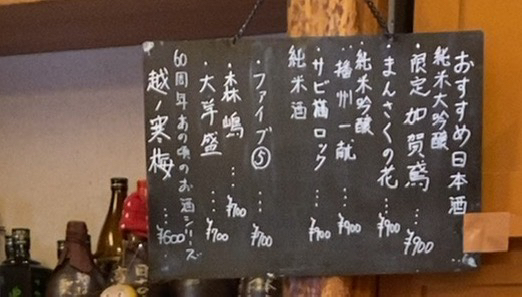 おすすめ日本酒
純米大吟醸
・限定 加賀鳶 … ¥900
・まんさくの花 … ¥900
純米吟醸
・播州一献 … ¥900
・サビ猫ロック … ¥900
純米酒
・ファイブ⑤ … ¥700
・森嶋 … ¥700
・大羊盛 … ¥700
60周年 あの頃のお酒シリーズ
越ノ寒梅 … ¥600